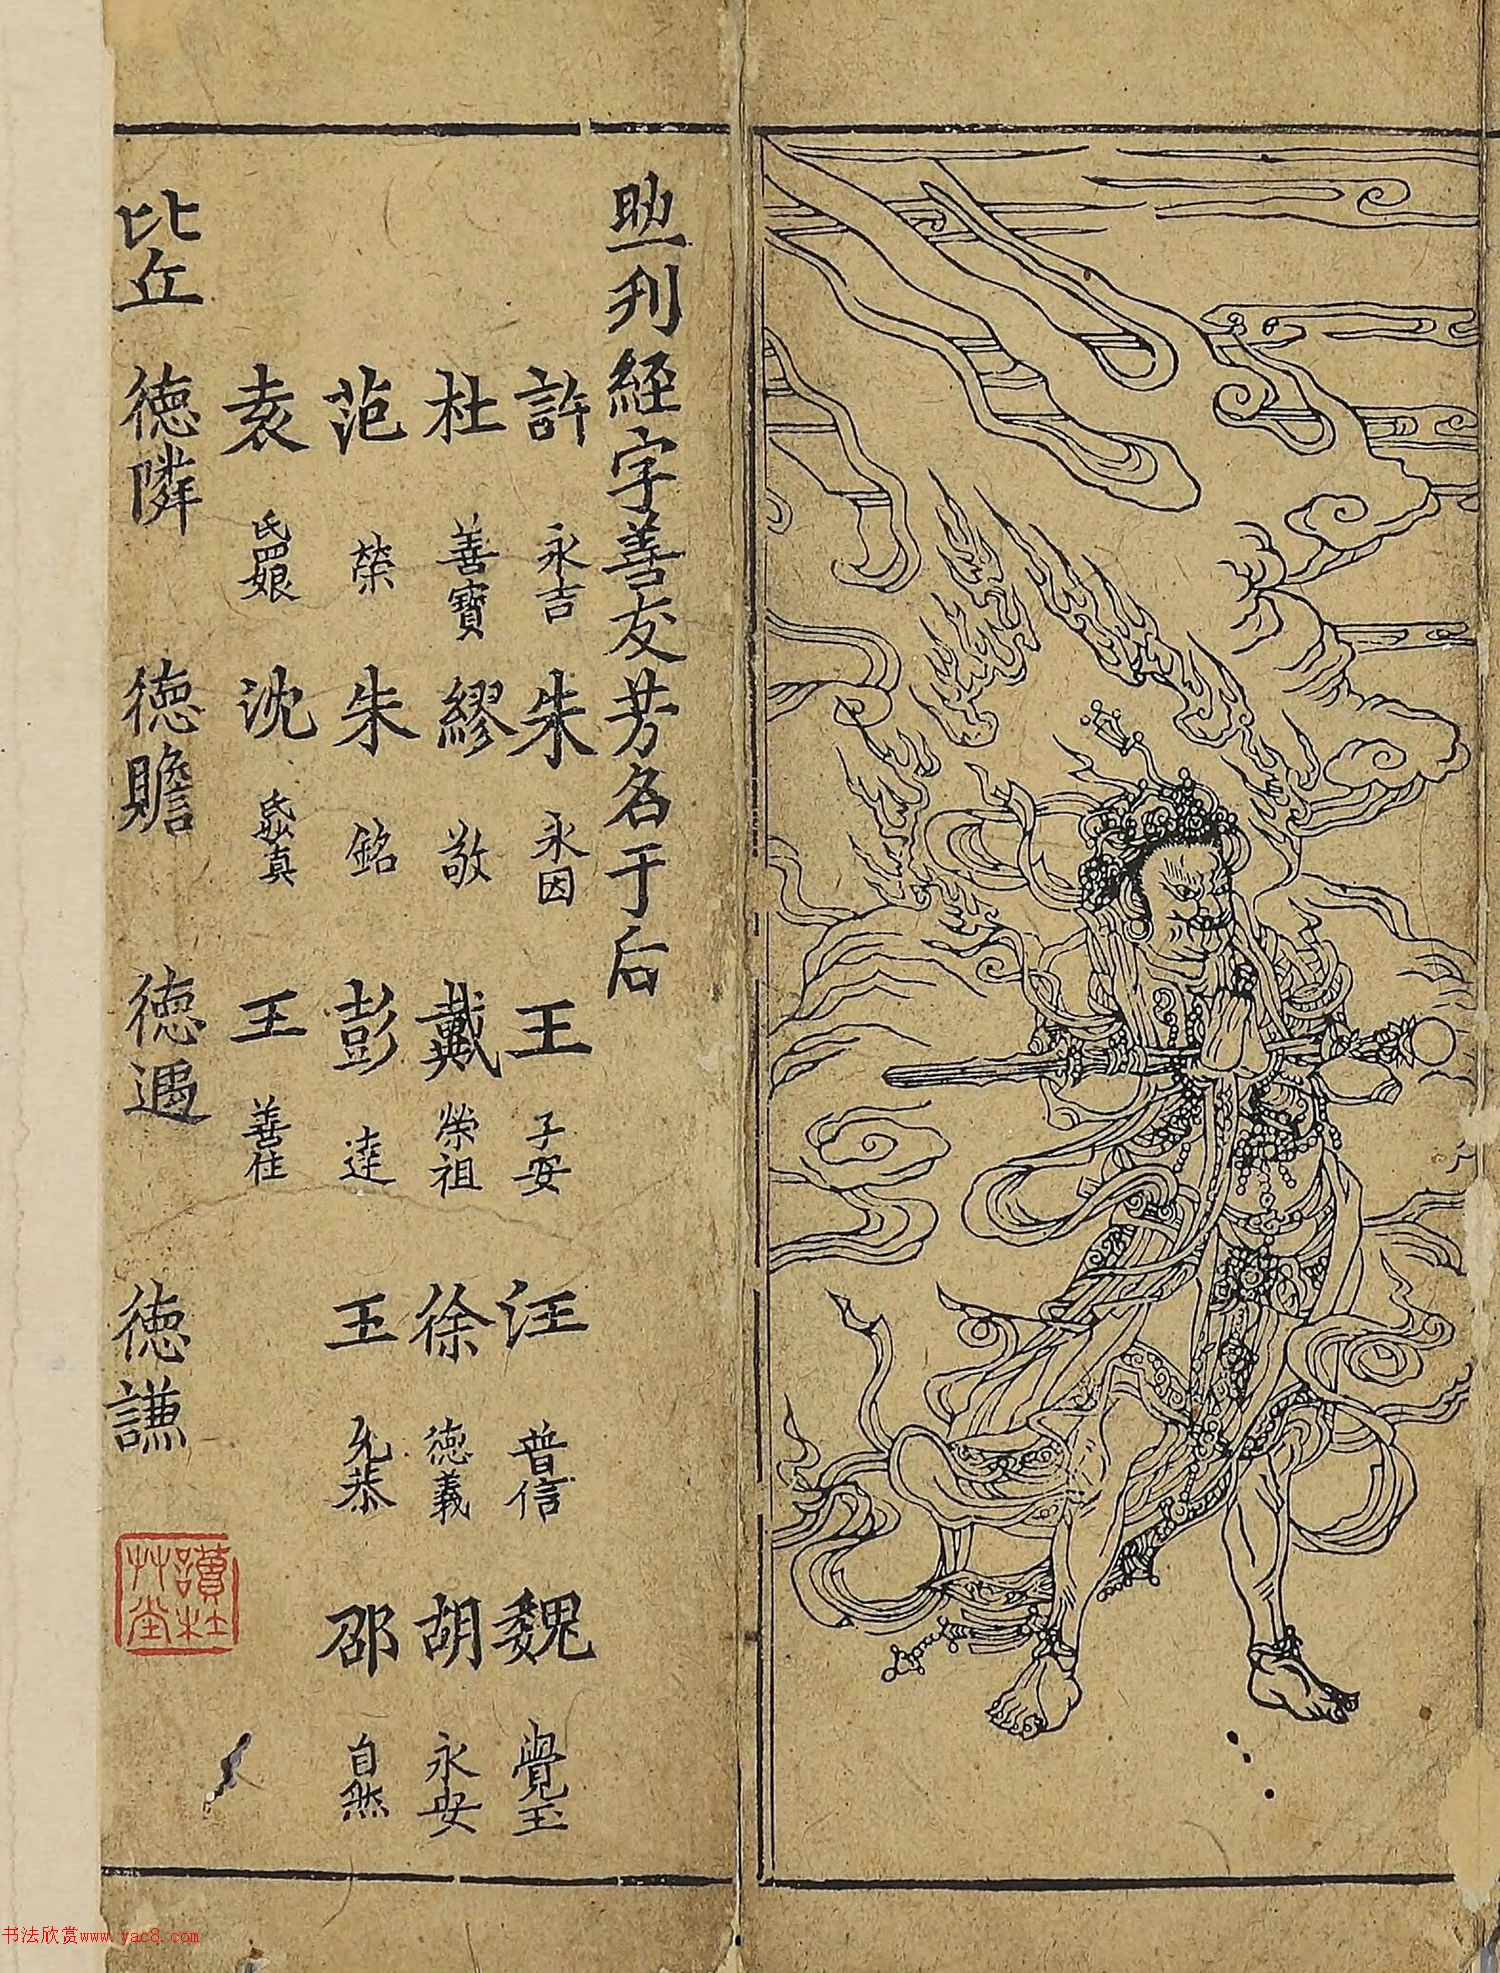 助刋經字善友芳名于后
許永吉 朱永因 王子安 汪普信 魏覺玉
杜善寶 繆敬 戴榮祖 徐德義 胡永安
范榮 朱銘 彭達 王允恭 邵自然
袁氏四娘 沈氏妙真 王善住
比丘 德隣 德贍 德遇 德謙
讀杜艸堂
书法欣赏www.yac8.com